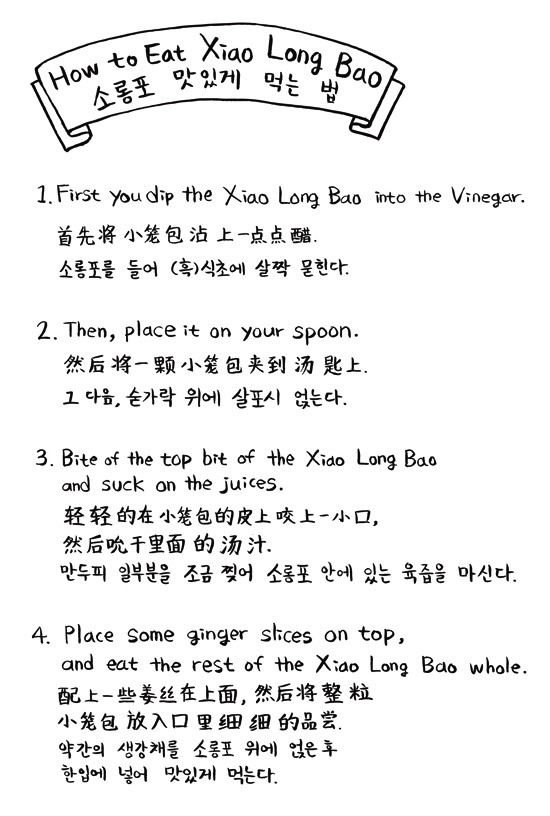 How to Eat Xiao Long Bao
소롱포 맛있게 먹는 법
1. First you dip the Xiao Long Bao into the Vinegar.
首先将小笼包沾上一点点醋.
소롱포를 들어 (흑)식초에 살짝 묻힌다.
2. Then, place it on your spoon.
然后将一颗小笼包夹到汤匙上.
그 다음, 숟가락 위에 살포시 얹는다.
3. Bite of the top bit of the Xiao Long Bao
and suck on the juices.
轻轻的在小笼包的皮上咬上一小口,
然后吮干里面的汤汁.
만두피 일부분을 조금 찢어 소롱포 안에 있는 육즙을 마신다.
4. Place some ginger slices on top,
and eat the rest of the Xiao Long Bao whole.
配上一些姜丝在上面, 然后将整粒
小笼包放入口里细细的品尝.
약간의 생강채를 소롱포 위에 얹은 후
한입에 넣어 맛있게 먹는다.